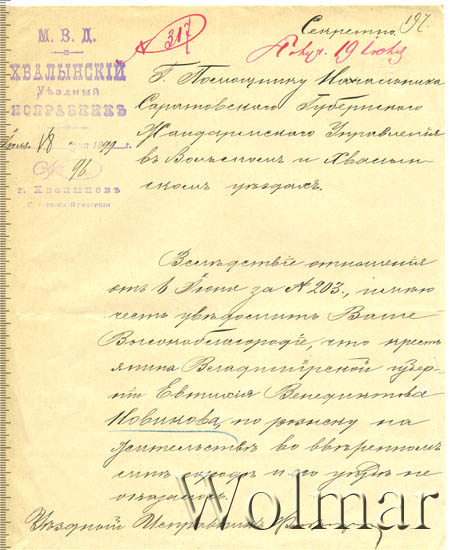 Секретно 197.
М. В. Д.
№ 317
Получ. 19 Июня
ХВАЛЫНСКІЙ
Уѣздный
ИСПРАВНИКЪ
Июня 18 дня 1899 г.
№ 96
г. ХВАЛЫНСКЪ
Саратовской губерніи
Г. Помощнику Начальника
Саратовскаго Губернскаго
Жандармскаго Управленія
въ Вольскомъ и Хвалын-
скомъ уѣздахъ.
Вслѣдствіе отношенія
отъ 6 Іюня за № 203, имѣю
честь увѣдомить Ваше
Высокоблагородіе, что кресть
янина Владимірской губер-
ніи Евтихія Венедиктова
Новикова, по розыску на
жительствѣ во ввѣренномъ
мнѣ городѣ и его уѣздѣ не
оказалось.
Уѣздный Исправникъ
Wolmar